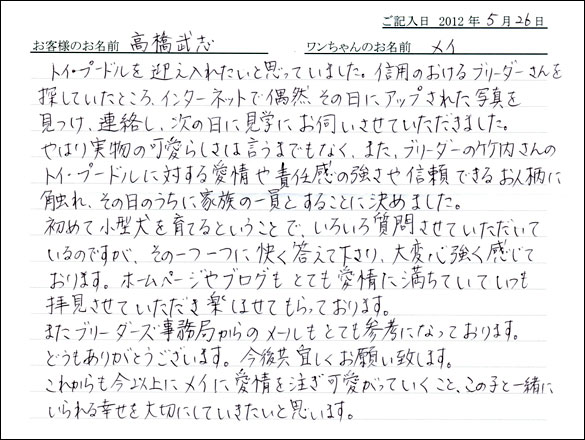 ご記入日 2012年5月26日
お客様のお名前 高橋武志 ワンちゃんのお名前 メイ
トイ・プードルを迎え入れたいと思っていました。信用のおけるブリーダーさんを
探していたところ、インターネットで偶然、その日にアップされた写真を
見つけ、連絡し、次の日に見学にお伺いさせていただきました。
やはり実物の可愛らしさは言うまでもなく、また、ブリーダーの竹内さんの
トイ・プードルに対する愛情や責任感の強さや信頼できるお人柄に
触れ、その日のうちに家族の一員とすることに決めました。
初めて小型犬を育てるということで、いろいろ質問させていただいて
いるのですが、その一つ一つに快く答えて下さり、大変心強く感じて
おります。ホームページやブログもとても愛情に満ちていていつも
拝見させていただき楽しませてもらっております。
またブリーダーズ事務局からのメールもとても参考になっております。
どうもありがとうございます。今後共宜しくお願い致します。
これからも今以上にメイに愛情を注ぎ可愛がっていくこと、この子と一緒に
いられる幸せを大切にしていきたいと思います。